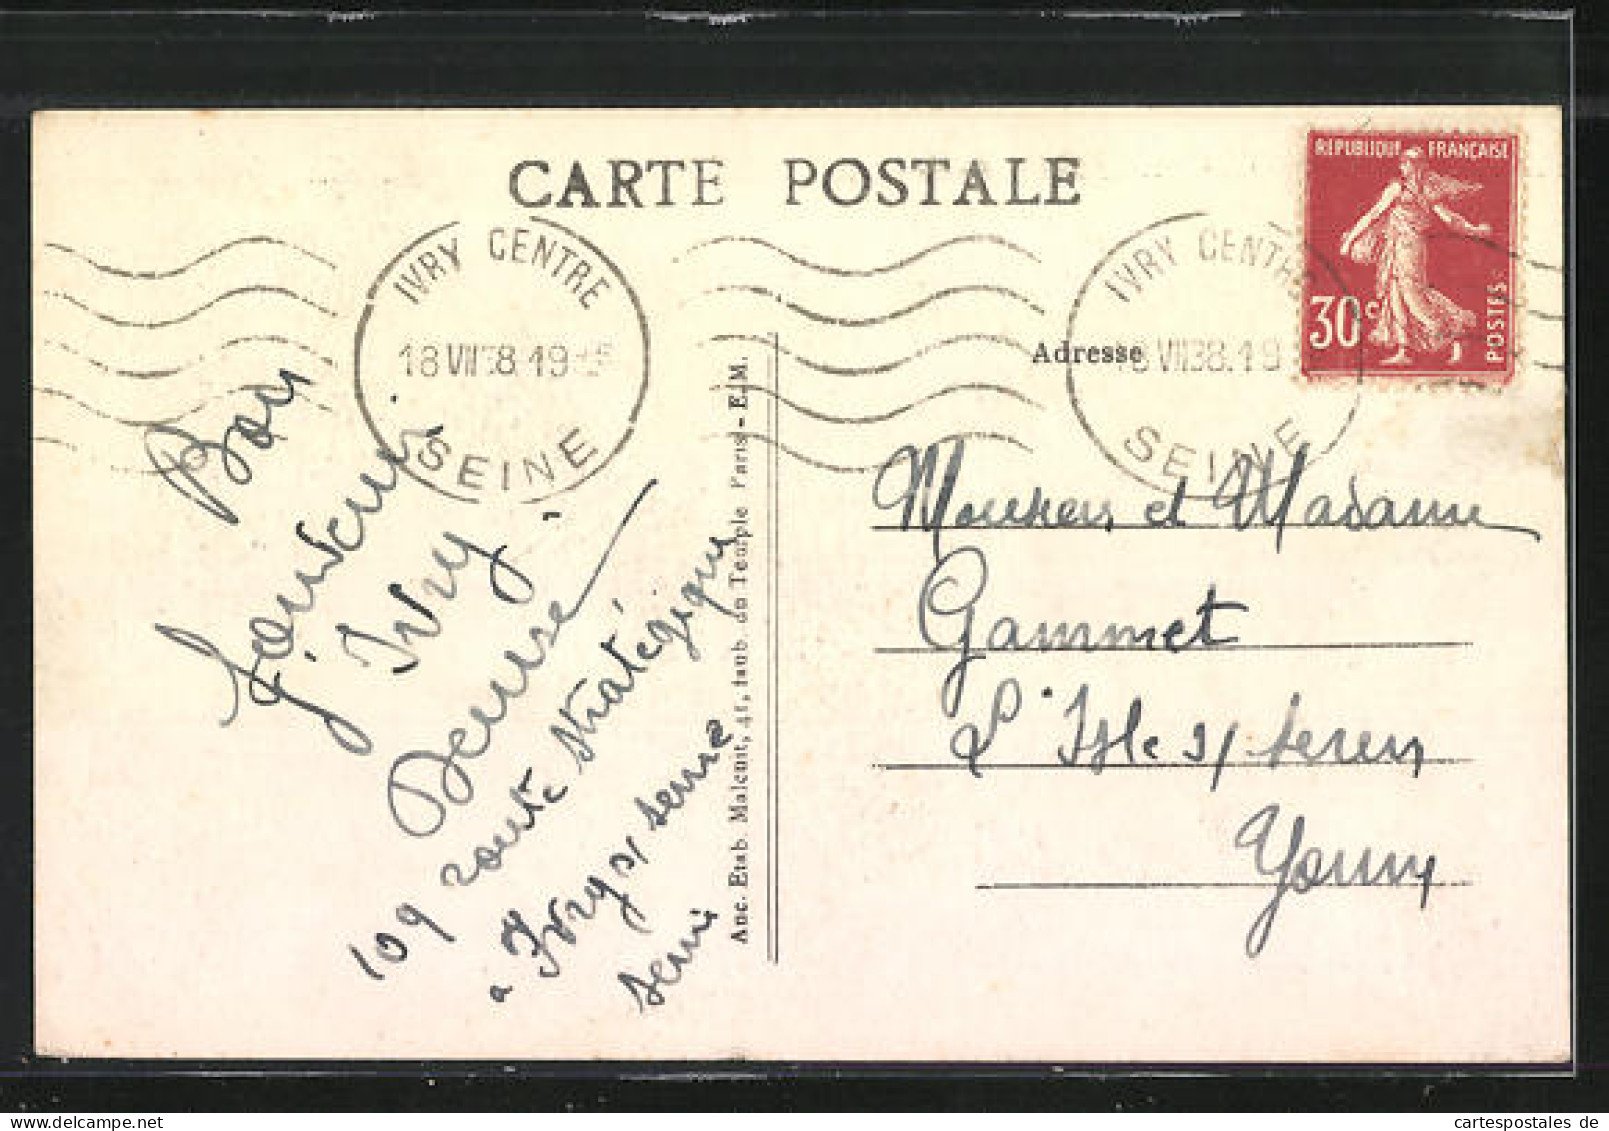 CARTE POSTALE
RÉPUBLIQUE FRANÇAISE
30c
POSTES
IVRY CENTRE
18 VII 38. 19
SEINE
IVRY CENTRE
18 VII 38. 19
SEINE
Adresse
Bon
Souvenir
d'Ivry
Denise
109 route stratégique
a Ivry s/ seine
seine
Anc. Etab. Malcuit, 41, faub. du Temple Paris - E. M.
Monsieur et Madame
Gammet
L'Isle s/ serein
Yonne
cartespostales de